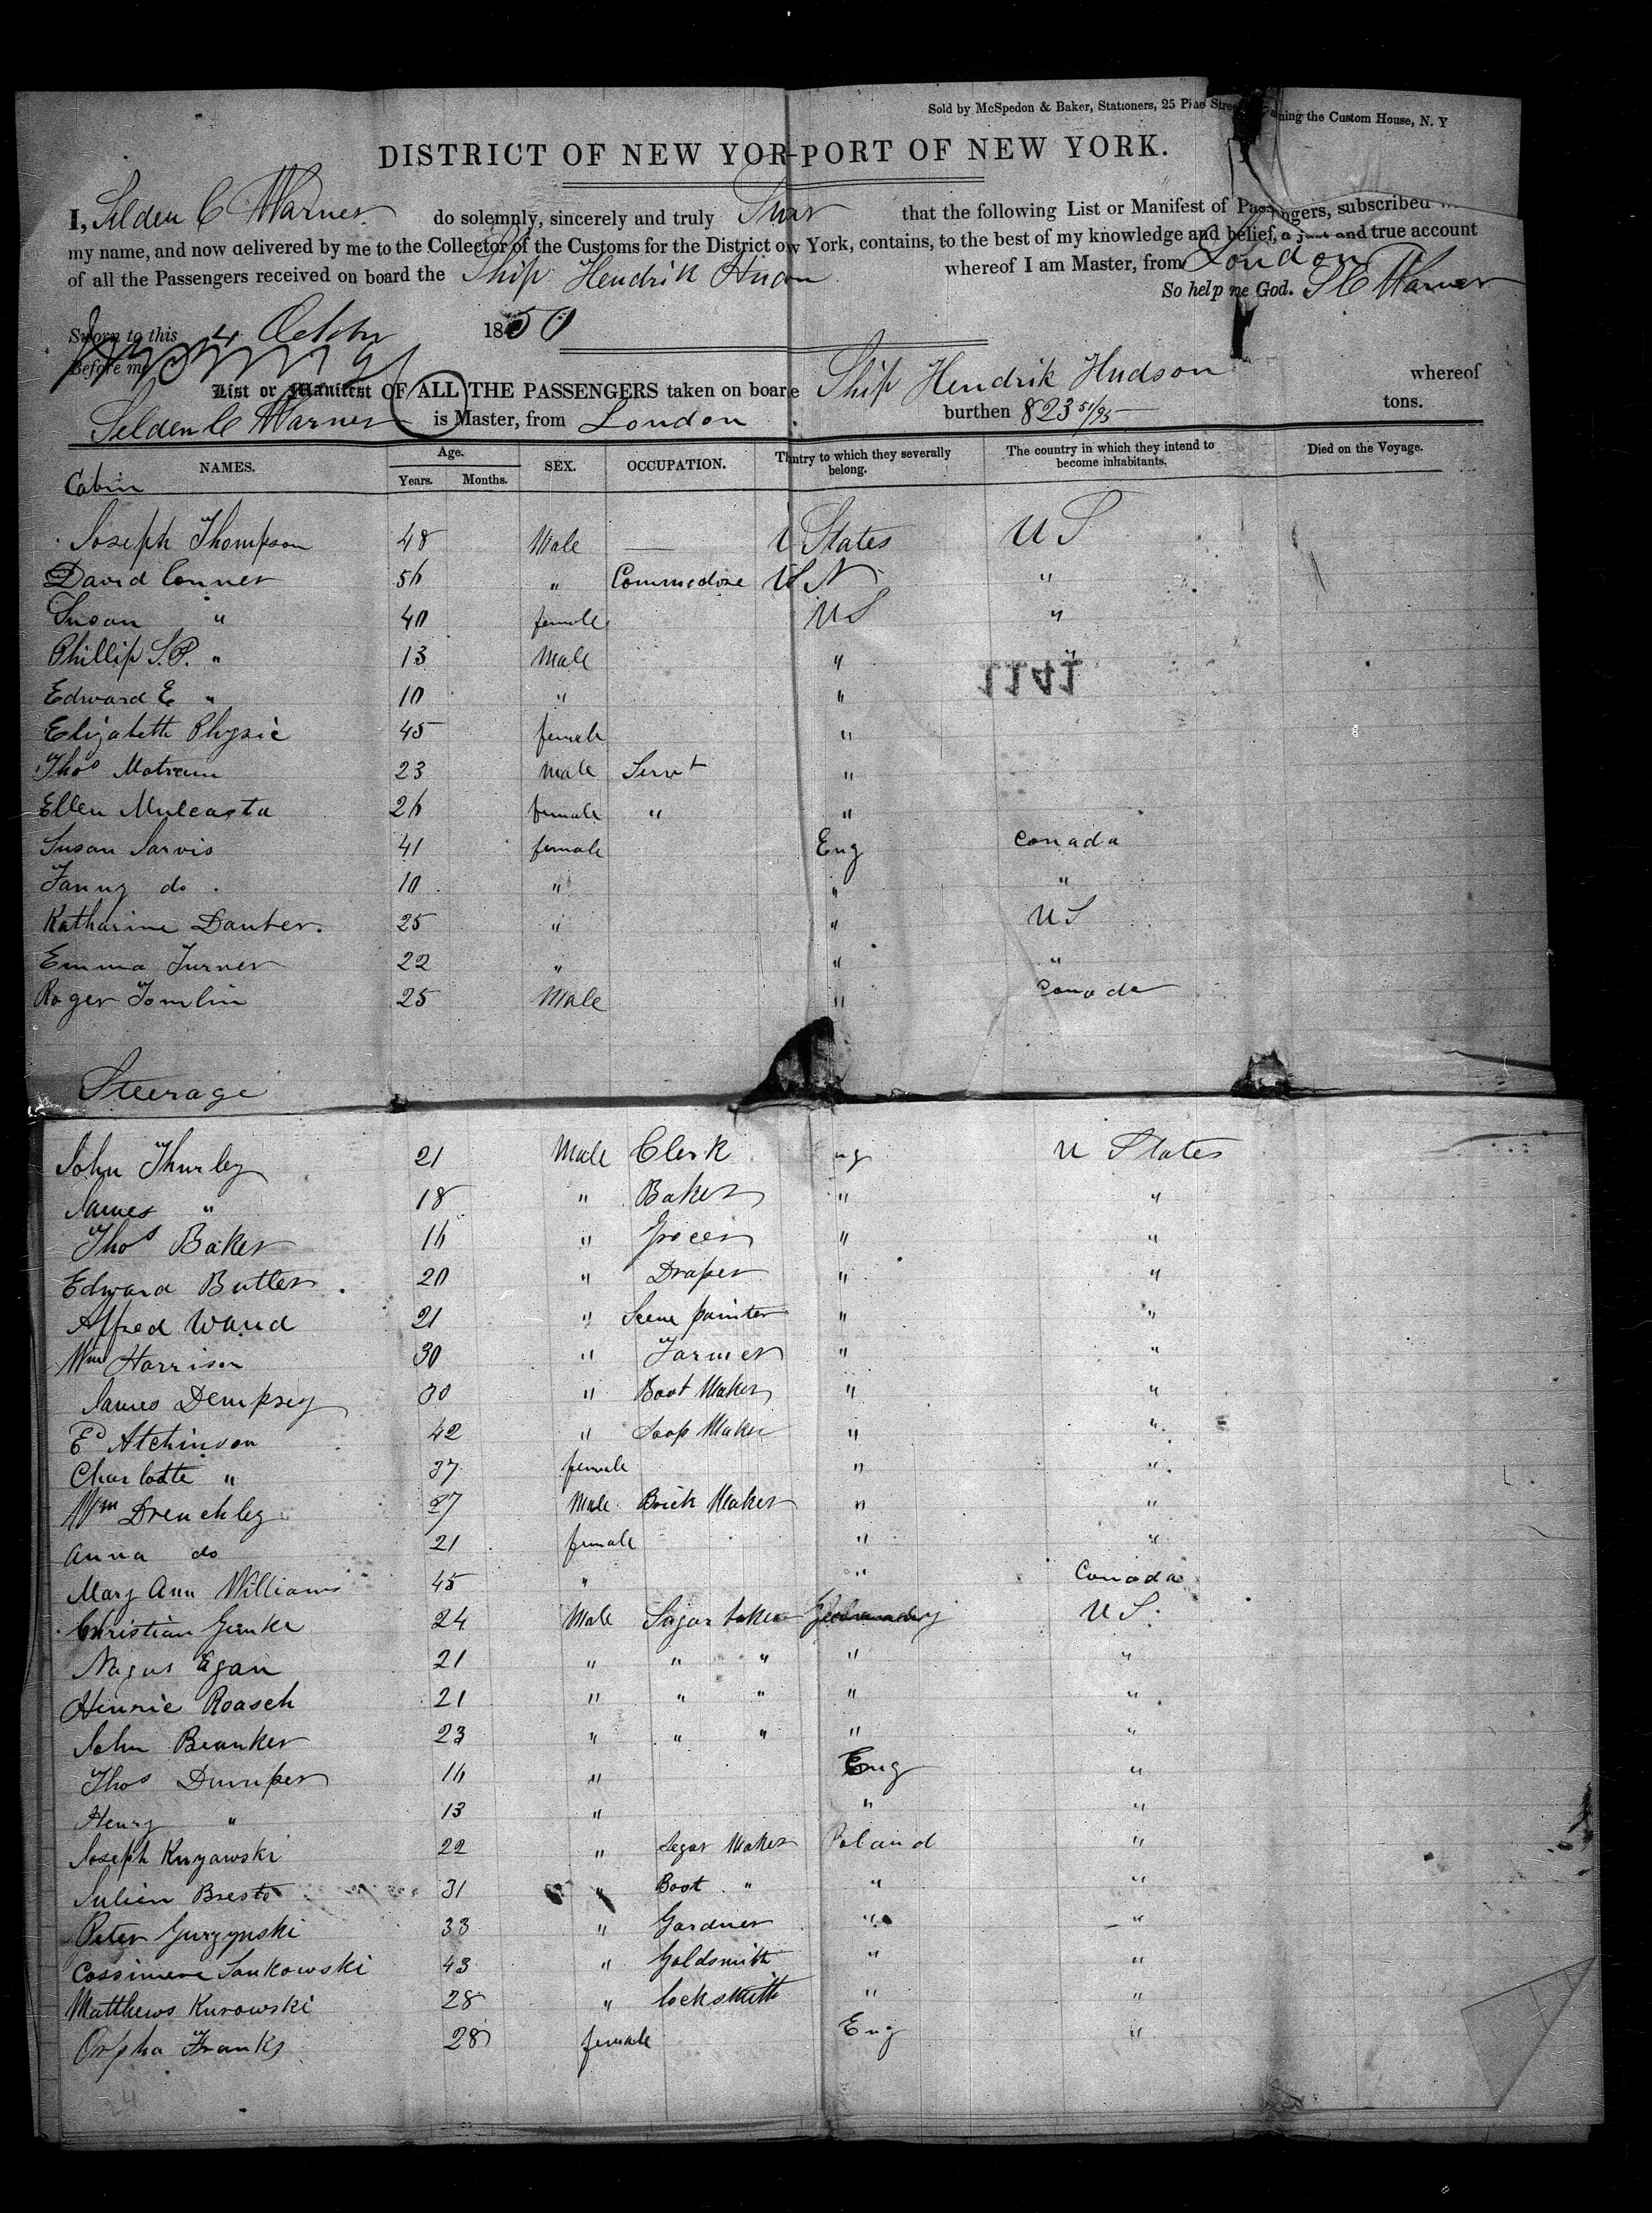 Sold by McSpedon & Baker, Stationers, 25 Pine Stre ning the Custom House, N. Y
DISTRICT OF NEW YOR-PORT OF NEW YORK.
I, Selden C Warner do solemnly, sincerely and truly Swar that the following List or Manifest of Passengers, subscribed
my name, and now delivered by me to the Collector of the Customs for the District ow York, contains, to the best of my knowledge and belief, a just and true account
of all the Passengers received on board the Ship Hendrik Hudon whereof I am Master, from London
So help me God. S C Warner
Sworn to this 4 Octobr 1850
Before me
List or Manifest OF ALL THE PASSENGERS taken on board Ship Hendrik Hudson whereof
Selden C Warner is Master, from London burthen 823 51/95 tons.
NAMES. Age. Years. Months. SEX. OCCUPATION. Thntry to which they severally belong. The country in which they intend to become inhabitants. Died on the Voyage.
Cabin
Joseph Thompson 48 Male — U States U S
David Conner 56 " Commodore US N "
Susan " 40 female US "
Phillip S.P. " 13 Male " "
1141
Edward E " 10 " "
Elizabeth Physic 45 female "
Thos Motram 23 Male Servt "
Ellen Mulcasta 26 female " "
Susan Jarvis 41 female Eng Canada
Fanny do . 10 " " "
Katharine Dauber. 25 " " US
Emma Turner 22 " " "
Roger Tomlin 25 Male " Canada
Steerage
John Thurley 21 Male Clerk ng U States
James " 18 " Baker " "
Thos Baker 16 " Grocer " "
Edward Butler . 20 " Draper " "
Alfred Waud 21 " Scene painter " "
Wm Harrison 30 " Farmer " "
James Dempsey 30 " Boot Maker " "
Ed Atchinson 42 " Soap Maker " "
Charlotte " 37 female " "
Wm Drenchley 27 Male Brick Maker " "
Anna do 21 female " "
Mary Ann Williams 45 " " Canada
Christian Genke 24 Male Sugar baker Germany U S.
Magus Egan 21 " " " " "
Henrie Roasch 21 " " " " "
John Beanker 23 " " " " "
Thos Dumper 16 " Eng "
Henry " 13 " " "
Joseph Kuyawski 22 " Segar Maker Poland "
Julien Breste 31 " Boot " " "
Peter Gurzynski 33 " Gardner " "
Cossimere Sankowski 43 " Goldsmith " "
Matthews Kurowski 28 " locksmith " "
Orpha Franks 28 female Eng "
24